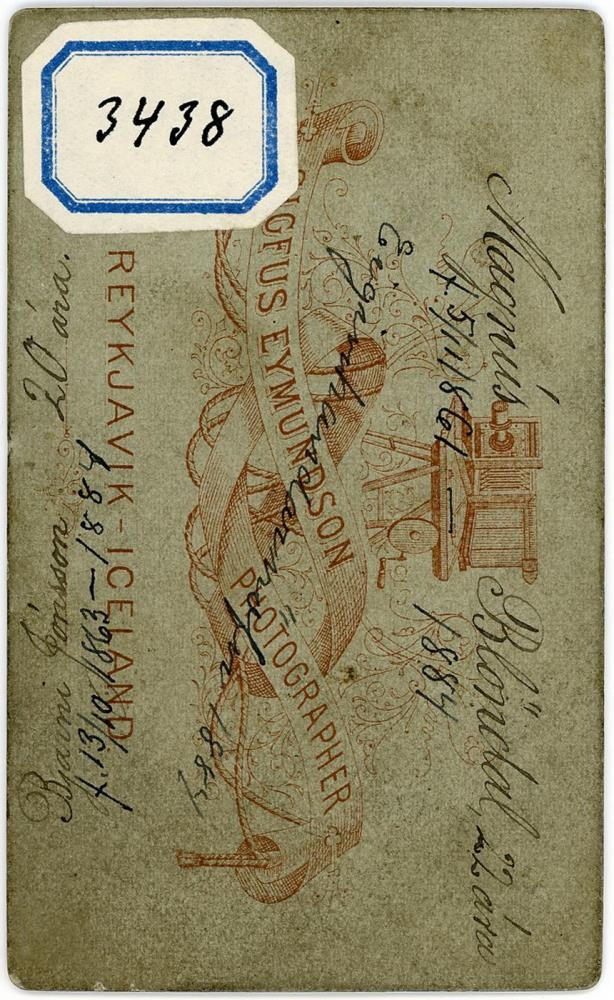 3438
Magnús Blöndal, 22 ára
f. 5/11 1861 — 1884
SIGFUS EYMUNDSON
PHOTOGRAPHER
1884
REYKJAVIK - ICELAND
Bjarni Jónsson 20 ára.
f. 13/10 1863 — 1884